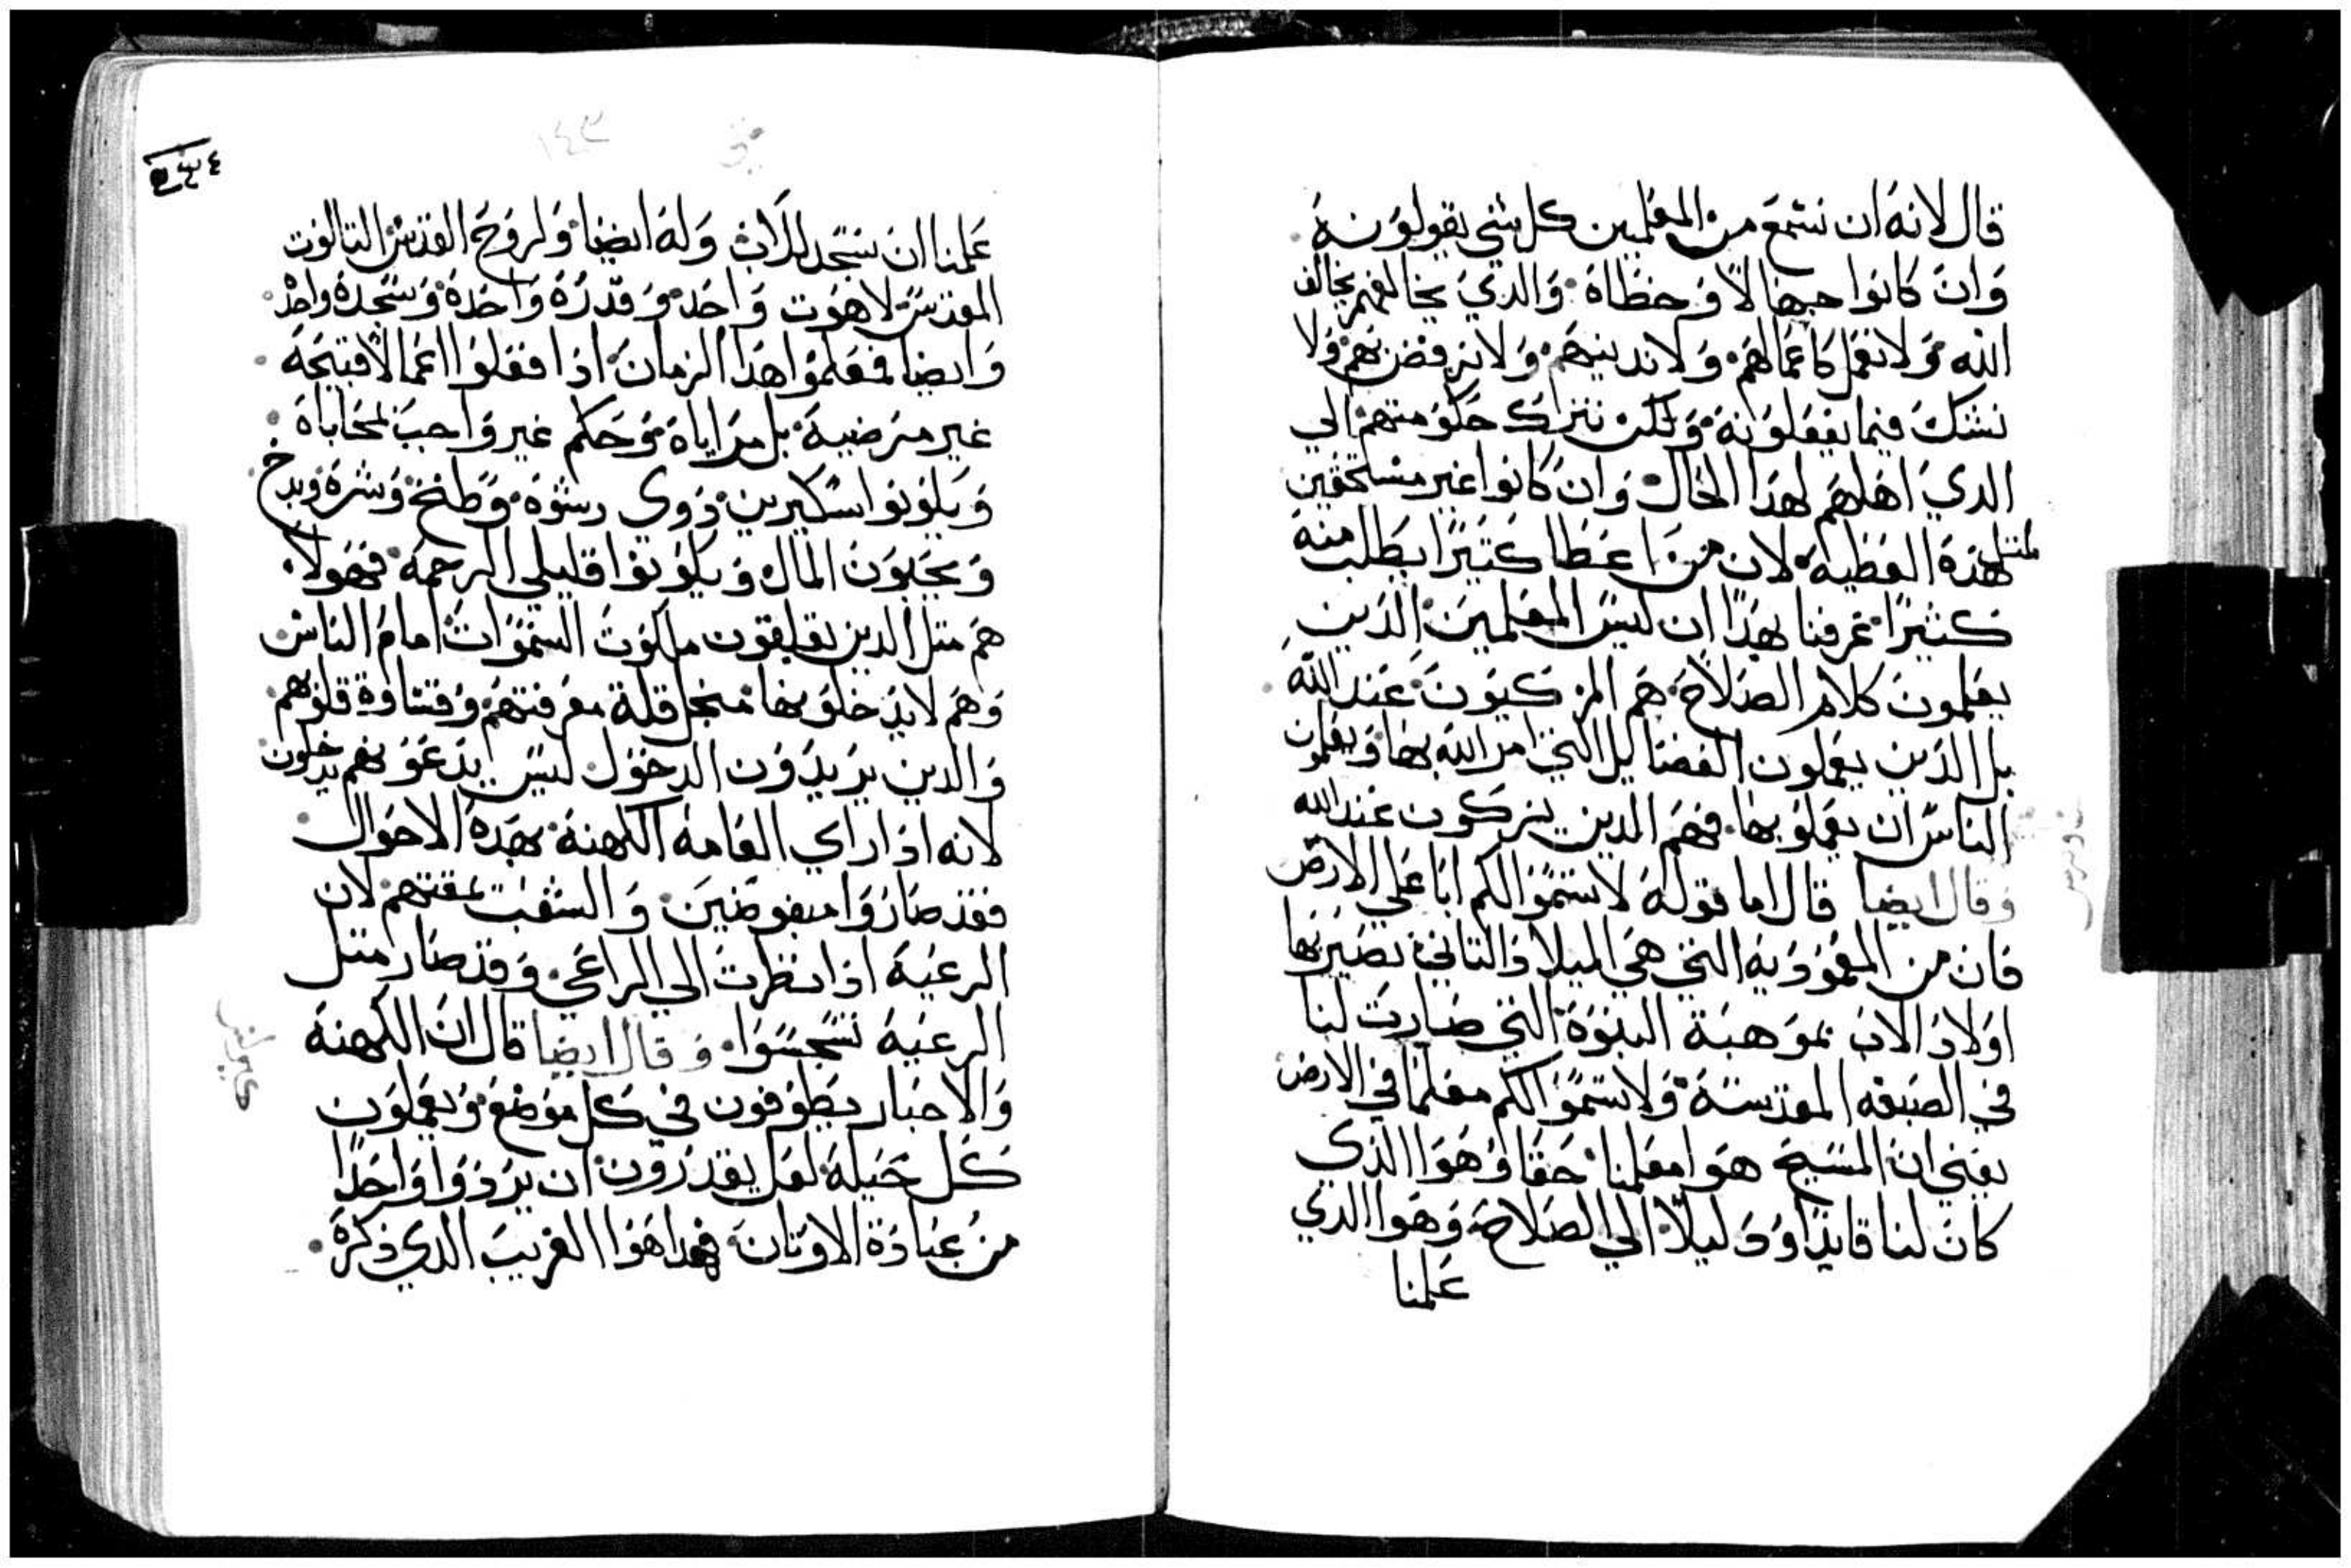 قال لانه ان نسمع من المعلمين كل شي يقولونه
وان كانوا جهالا وخطاة والدي يخالفهم يخالف
الله ولا نعمل كاعمالهم ولا ندينهم ولا نرفضهم ولا
نشك فيما يفعلونه ولكن نترك حكومتهم الي
الدي اهلهم لهدا الحال وان كانوا غير مستحقين
لمتل هذة العطية لان من اعطا كتيرا يطلب منه
كثيرا عرفنا بهدا ان ليس المعلمين الدين
يعلمون كلام الصلاح هم المزكيون عند الله
بل الدين يعملون الفضايل التي امر الله بها ويعلمون
الناس ان يعملو بها فهم الدين يتزكون عند الله
وقال ايضا قال اما قوله لا تسموا لكم ابا علي الارض
فان من المعمودية التي هي الميلاد التاني نصير بها
اولاد الاب بموهبة البنوة التي صارت لنا
في الصبغه المقدسة ولا تسموا لكم معلما في الارض
يعني ان المسيح هوا معلمنا حقا وهوا الدي
كان لنا قايدا ودليلا الي الصلاح وهوا الدي
علمنا
١٤٣
علمنا ان نسجد للاب وله ايضا ولروح القدس التالوت
المقدس لاهوت واحد وقدرة واحدة وسجدة واحدة
وايضا فمعلموا هدا الزمان ادا فعلوا اعمالا قبيحة
غير مرضية بل مراياة وحكم غير واجب بمحاباة
ويكونوا سكيرين دوي رشوة وطمع وشره وبدخ
ويحبون المال ويكونوا قليلي الرحمة فهولا
هم متل الدين يغلقون ملكوت السموات امام الناس
وهم لا يدخلو بها منجل قلة معرفتهم وقساوة قلوبهم
والدين يريدون الدخول ليس يدعونهم يدخلون
لانه ادا راي العامة الكهنة بهدة الاحوال
فقد صاروا مبغوضين والشعب يمقتهم لان
الرعية ادا نظرت الي الراعي وقد صار متل
الرعية تسجسوا وقال ايضا قال ان الكهنة
والاحبار يطوفون في كل موضع ويعملون
كل حيلة لعل يقدرون ان يردوا واحدا
من عبادة الاوتان فهدا هوا الغريب الدي دكرة